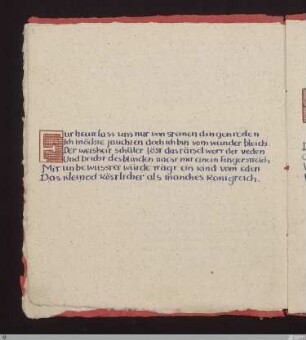 Für heute lass uns nur von sternen dingen reden
Ich möchte jauchzen doch ich bin vom wunder bleich
Der weisheit schüler löst das rätselwort der veden
Und bricht des blinden nacht mit einem fingerstreich
Mit unbewusster würde trägt ein kind vom eden
Das kleinod köstlicher als manches königreich.